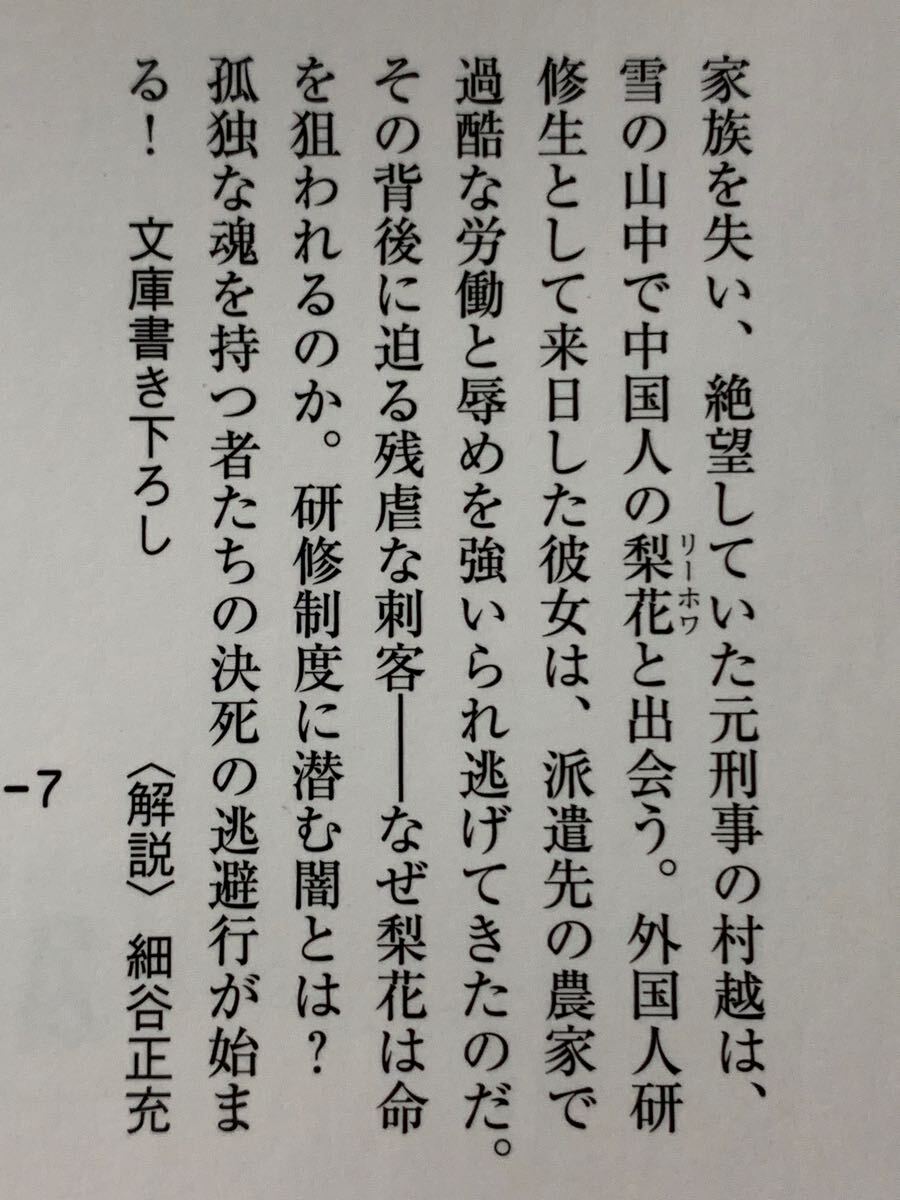 家族を失い、絶望していた元刑事の村越は、
雪の山中で中国人の梨花と出会う。外国人研
リーホワ
修生として来日した彼女は、派遣先の農家で
過酷な労働と辱めを強いられ逃げてきたのだ。
その背後に迫る残虐な刺客――なぜ梨花は命
を狙われるのか。研修制度に潜む闇とは?
孤独な魂を持つ者たちの決死の逃避行が始ま
る! 文庫書き下ろし 〈解説〉 細谷正充
-7